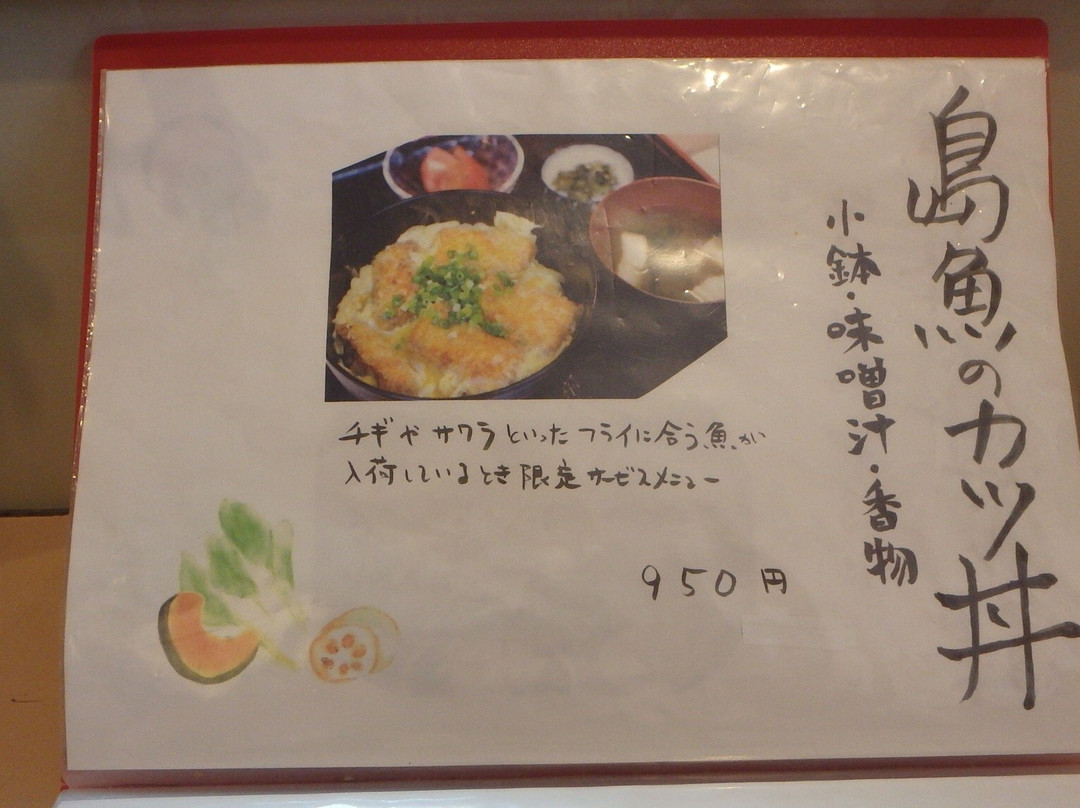 島魚のカツ丼
小鉢・味噌汁・香物
チギやサワラといったフライに合う魚が
入荷しているとき限定サービスメニュー
950円